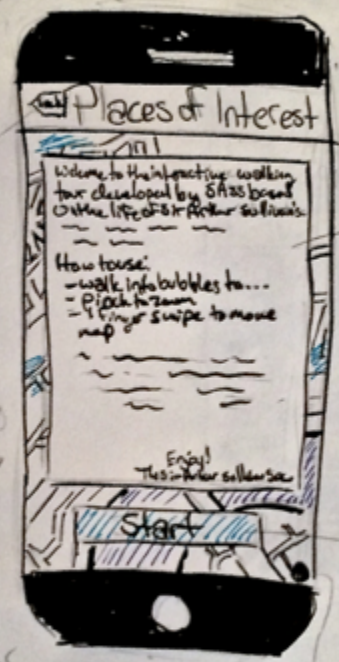 Places of Interest
Welcome to the interactive walking
tour developed by SASS based
on the life of Sir Arthur Sullivan's.
How to use:
- walk into bubbles to...
- Pinch to zoom
- 1 finger swipe to move
map
Enjoy!
The Sir Arthur Sullivan Soc
Start